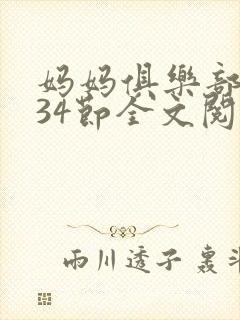 妈妈俱樂部
34節全文閱
雨川透子 轰斗